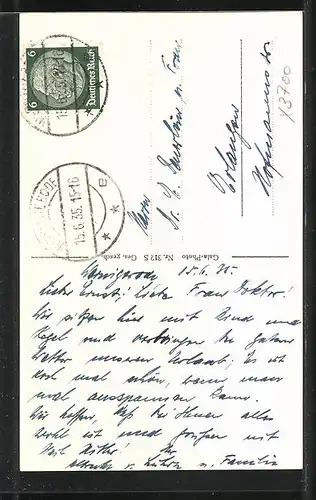 6
Deutsches Reich
6
15.6.35.15-16
e
Herrn
Dr.
Erlangen
13700
Gala-Photo Nr. 312 S Ges. gesch.
Wernigerode 15.6.35.
Liebe Frau Doktor!
Wir sitzen hier mit Kind und
Kegel und verbringen bei gutem
Wetter unseren Urlaub; Es ist
doch mal schön, wenn man
mal ausspannen kann.
Wir hoffen, daß bei Ihnen alles
wohl ist und grüßen mit
Heil Hitler! Ihr
u. Familie